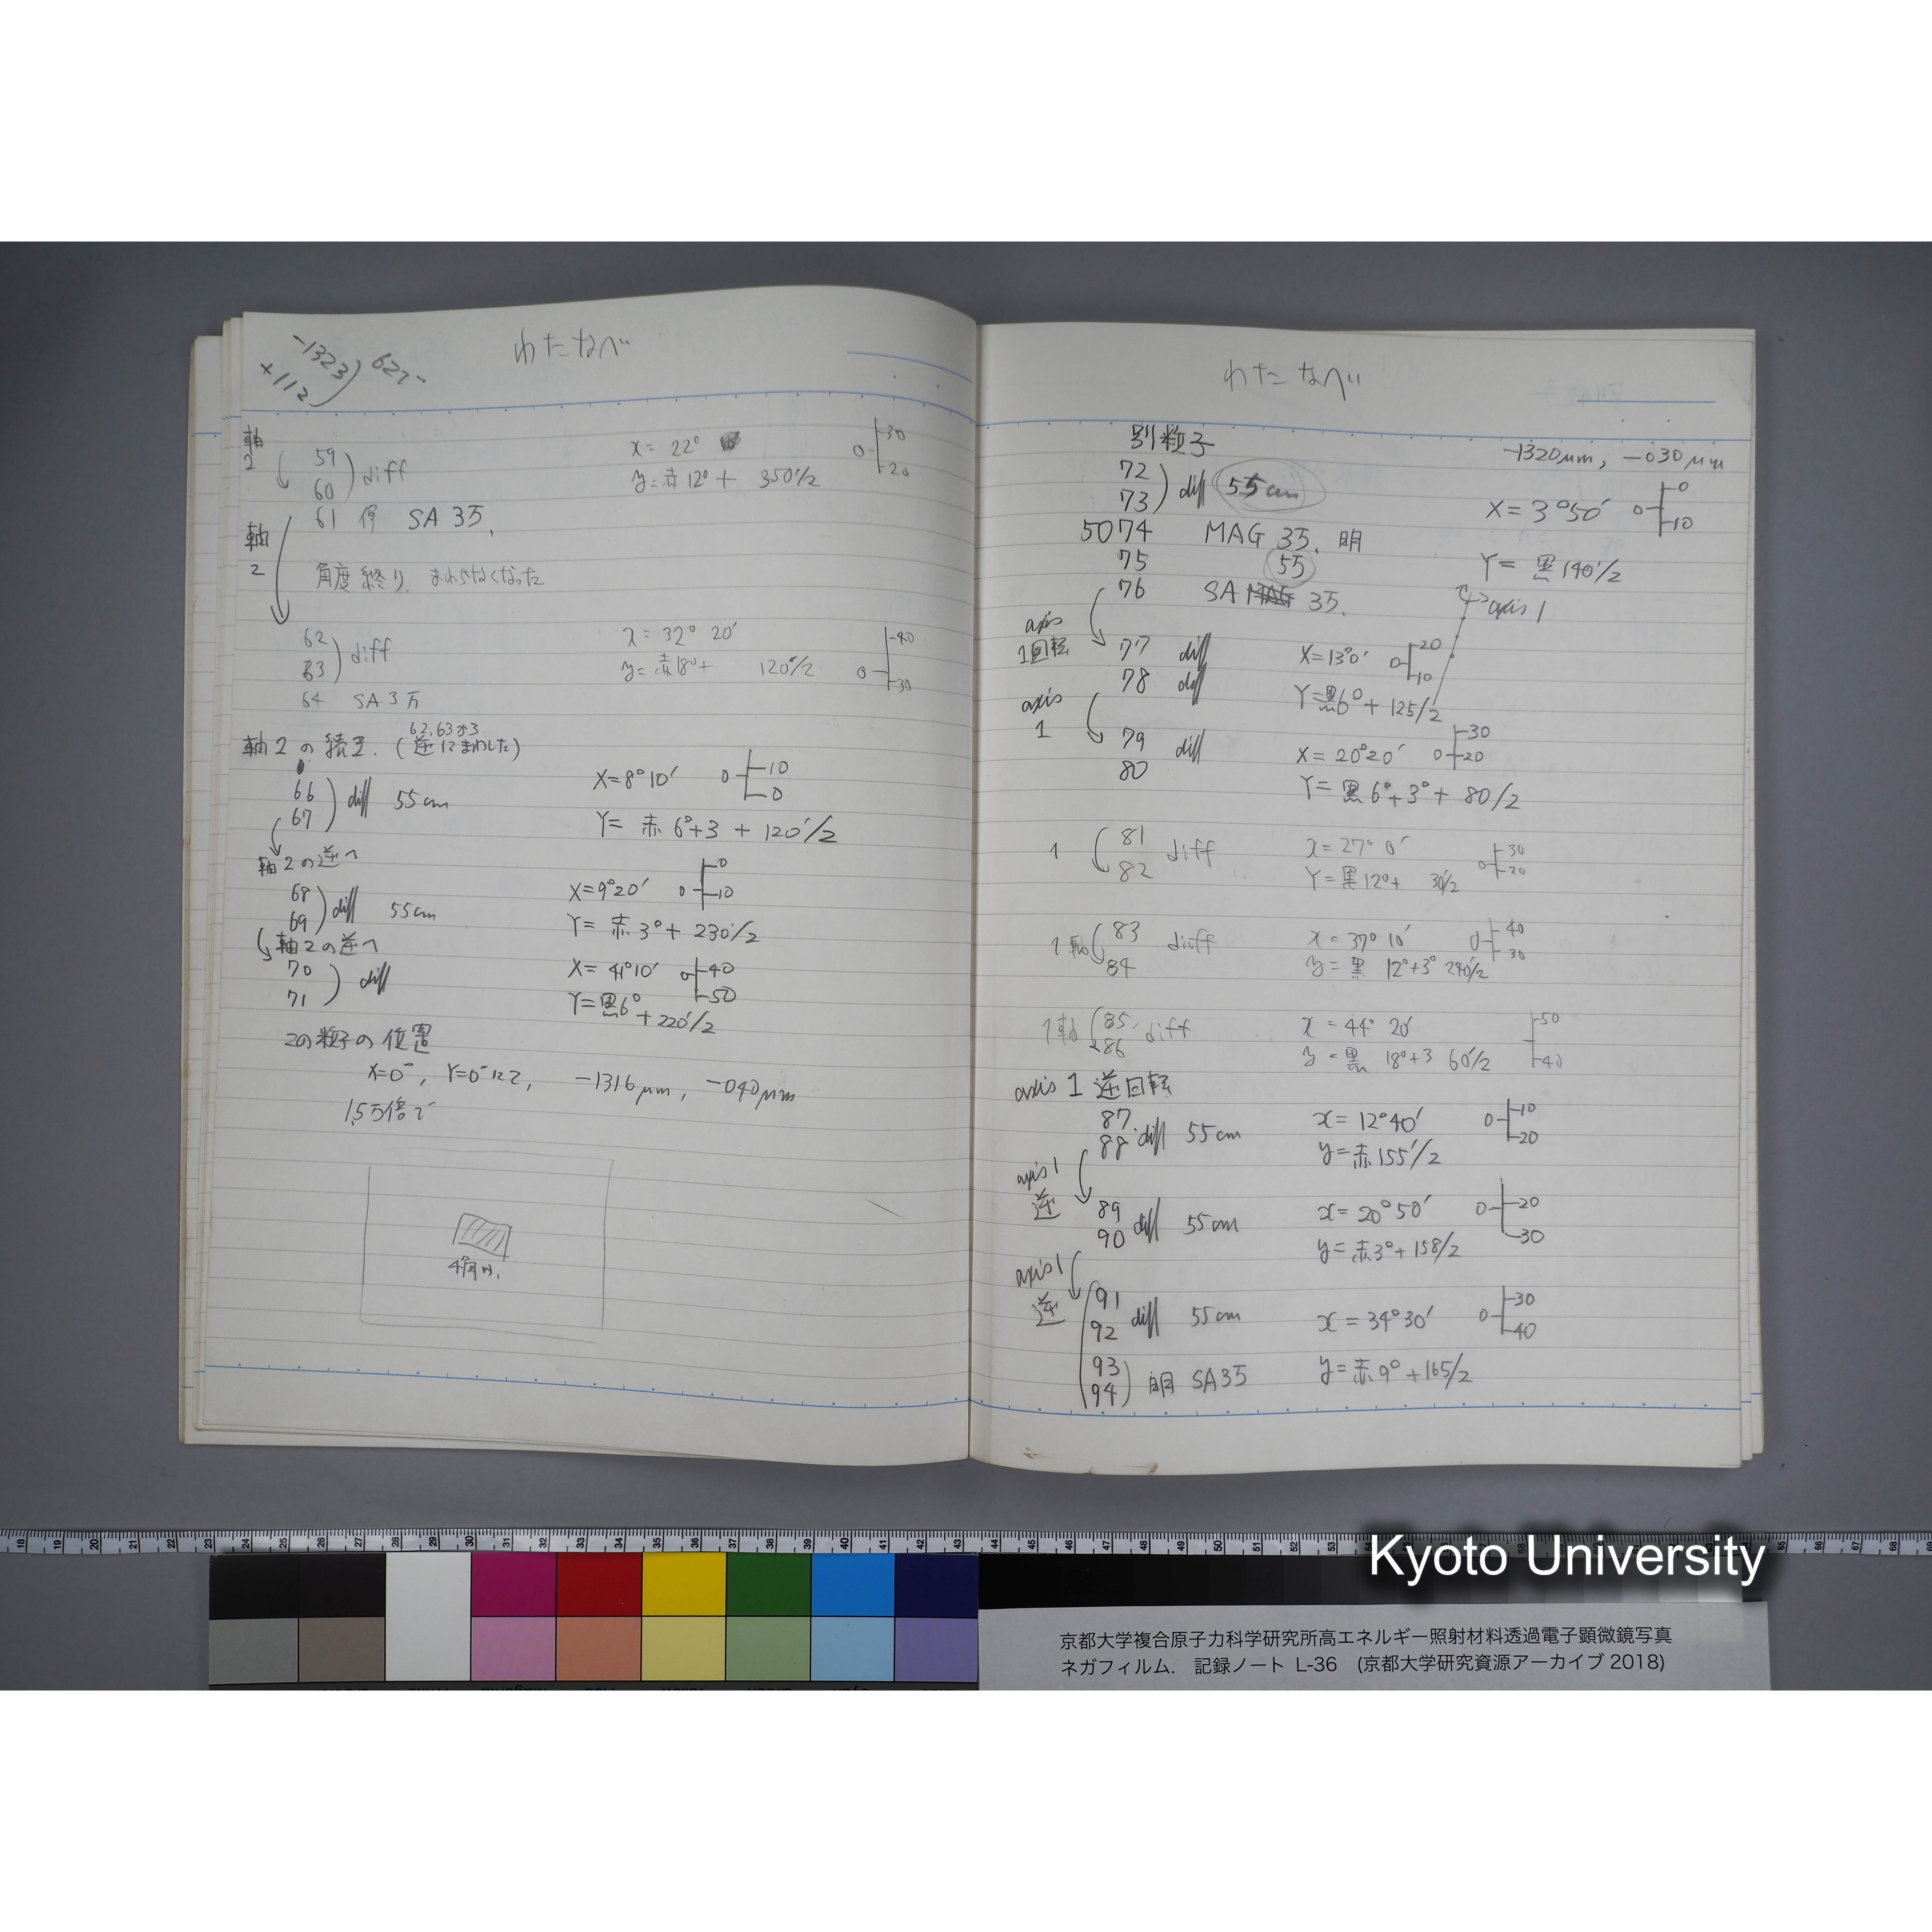 わたなべ
-1323
+112
軸2
59
60 diff
x = 22°
y = 赤12° + 350'/2
0 30 20
61 停 SA 3万.
軸2
角度終り. まわらなくなった
62
63 diff
x = 32° 20'
y = 赤18° + 120'/2
0 40 30
64 SA 3万
軸2の続き. (逆にまわした)
66
67 diff 55cm
X = 8°10'
0 10 0
Y = 赤 6°+3 + 120'/2
軸2の逆へ
68
69 diff 55cm
X = 9°20'
0 0 10
Y = 赤 3° + 230'/2
軸2の逆へ
70
71 diff
X = 41°10'
0 40 50
Y = 黒6° + 220'/2
2の粒子の位置
X=0°, Y=0°にて, -1316μm, -040μm
1.5万倍で
わたなべ
別粒子
-1320μm, -030μm
72
73 diff 55cm
X = 3°50'
0 0 10
5074 MAG 3万. 明
Y = 黒140'/2
75 55
76 SA 3万.
axis 1
axis 1回転
77 diff
78 diff
X=13°0'
0 20 10
Y=黒6° + 125/2
axis 1
79 diff
80
X = 20°20'
0 30 20
Y = 黒6°+3° + 80/2
1
81
82 diff
x = 27° 0'
0 30 20
Y = 黒12°+ 30'/2
1軸
83
84 diff
x = 37° 10'
0 40 30
y = 黒 12°+3° 240'/2
1軸
85
86 diff
x = 44° 20'
50 40
y = 黒 18°+3 60'/2
axis 1 逆回転
87
88 diff 55cm
x = 12°40'
0 10 20
y = 赤155'/2
axis 1 逆
89
90 diff 55cm
x = 20°50'
0 20 30
y = 赤3° + 158/2
axis 1 逆
91
92 diff 55cm
x = 34°30'
0 30 40
93
94 明 SA3万
y = 赤9° + 165/2
Kyoto University
京都大学複合原子力科学研究所高エネルギー照射材料透過電子顕微鏡写真
ネガフィルム. 記録ノート L-36 (京都大学研究資源アーカイブ 2018)